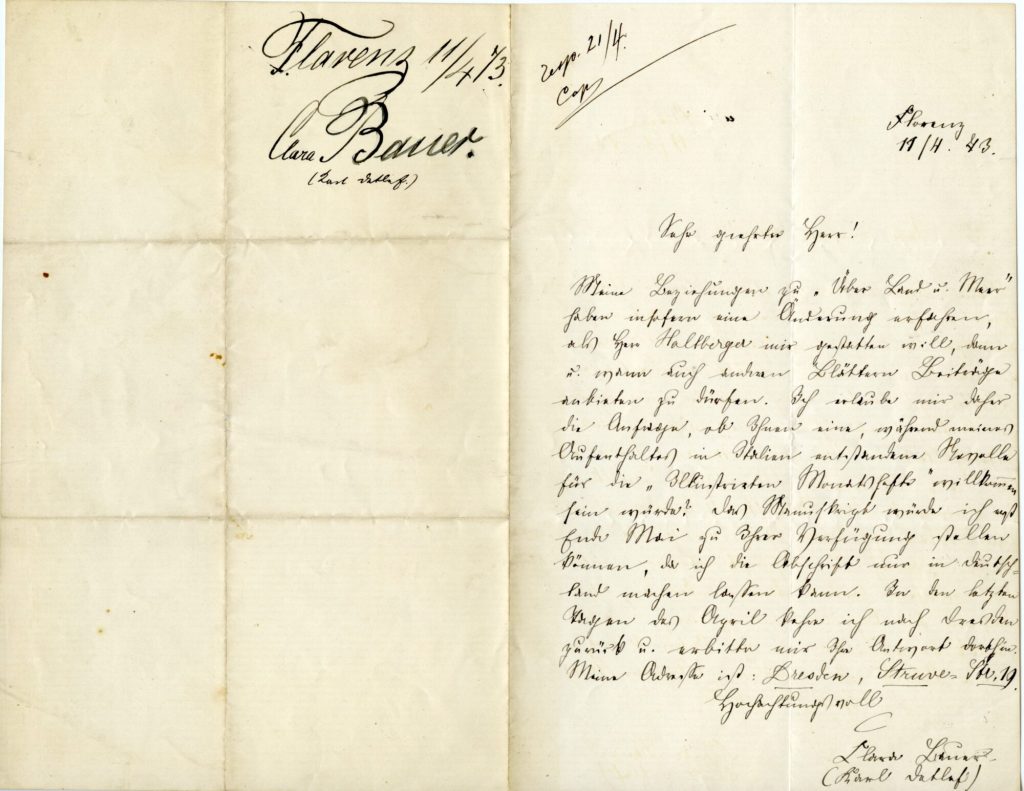 Florenz 11/4 73.
Clara Bauer.
(Karl Detlef.)
resp. 21/4.
Cop
Florenz
11/4. 73.
Sehr geehrter Herr!
Meine Beziehungen zu „Über Land u. Meer"
haben insofern eine Änderung erfahren,
als Herr Hallberger mir gestatten will, dann
u. wann auch anderen Blättern Beiträge
anbieten zu dürfen. Ich erlaube mir daher
die Anfrage, ob Ihnen eine, während meines
Aufenthaltes in Italien entstandene Novelle
für die „Illustrirten Monatshefte" willkommen
sein würde? Das Manuskript würde ich erst
Ende Mai zu Ihrer Verfügung stellen
können, da ich die Abschrift nur in Deutsch-
land machen lassen kann. In den letzten
Tagen des April kehre ich nach Dresden
zurück u. erbitte mir Ihre Antwort dorthin.
Meine Adresse ist: Dresden, Struve-Str. 19.
Hochachtungsvoll
Clara Bauer
(Karl Detlef)